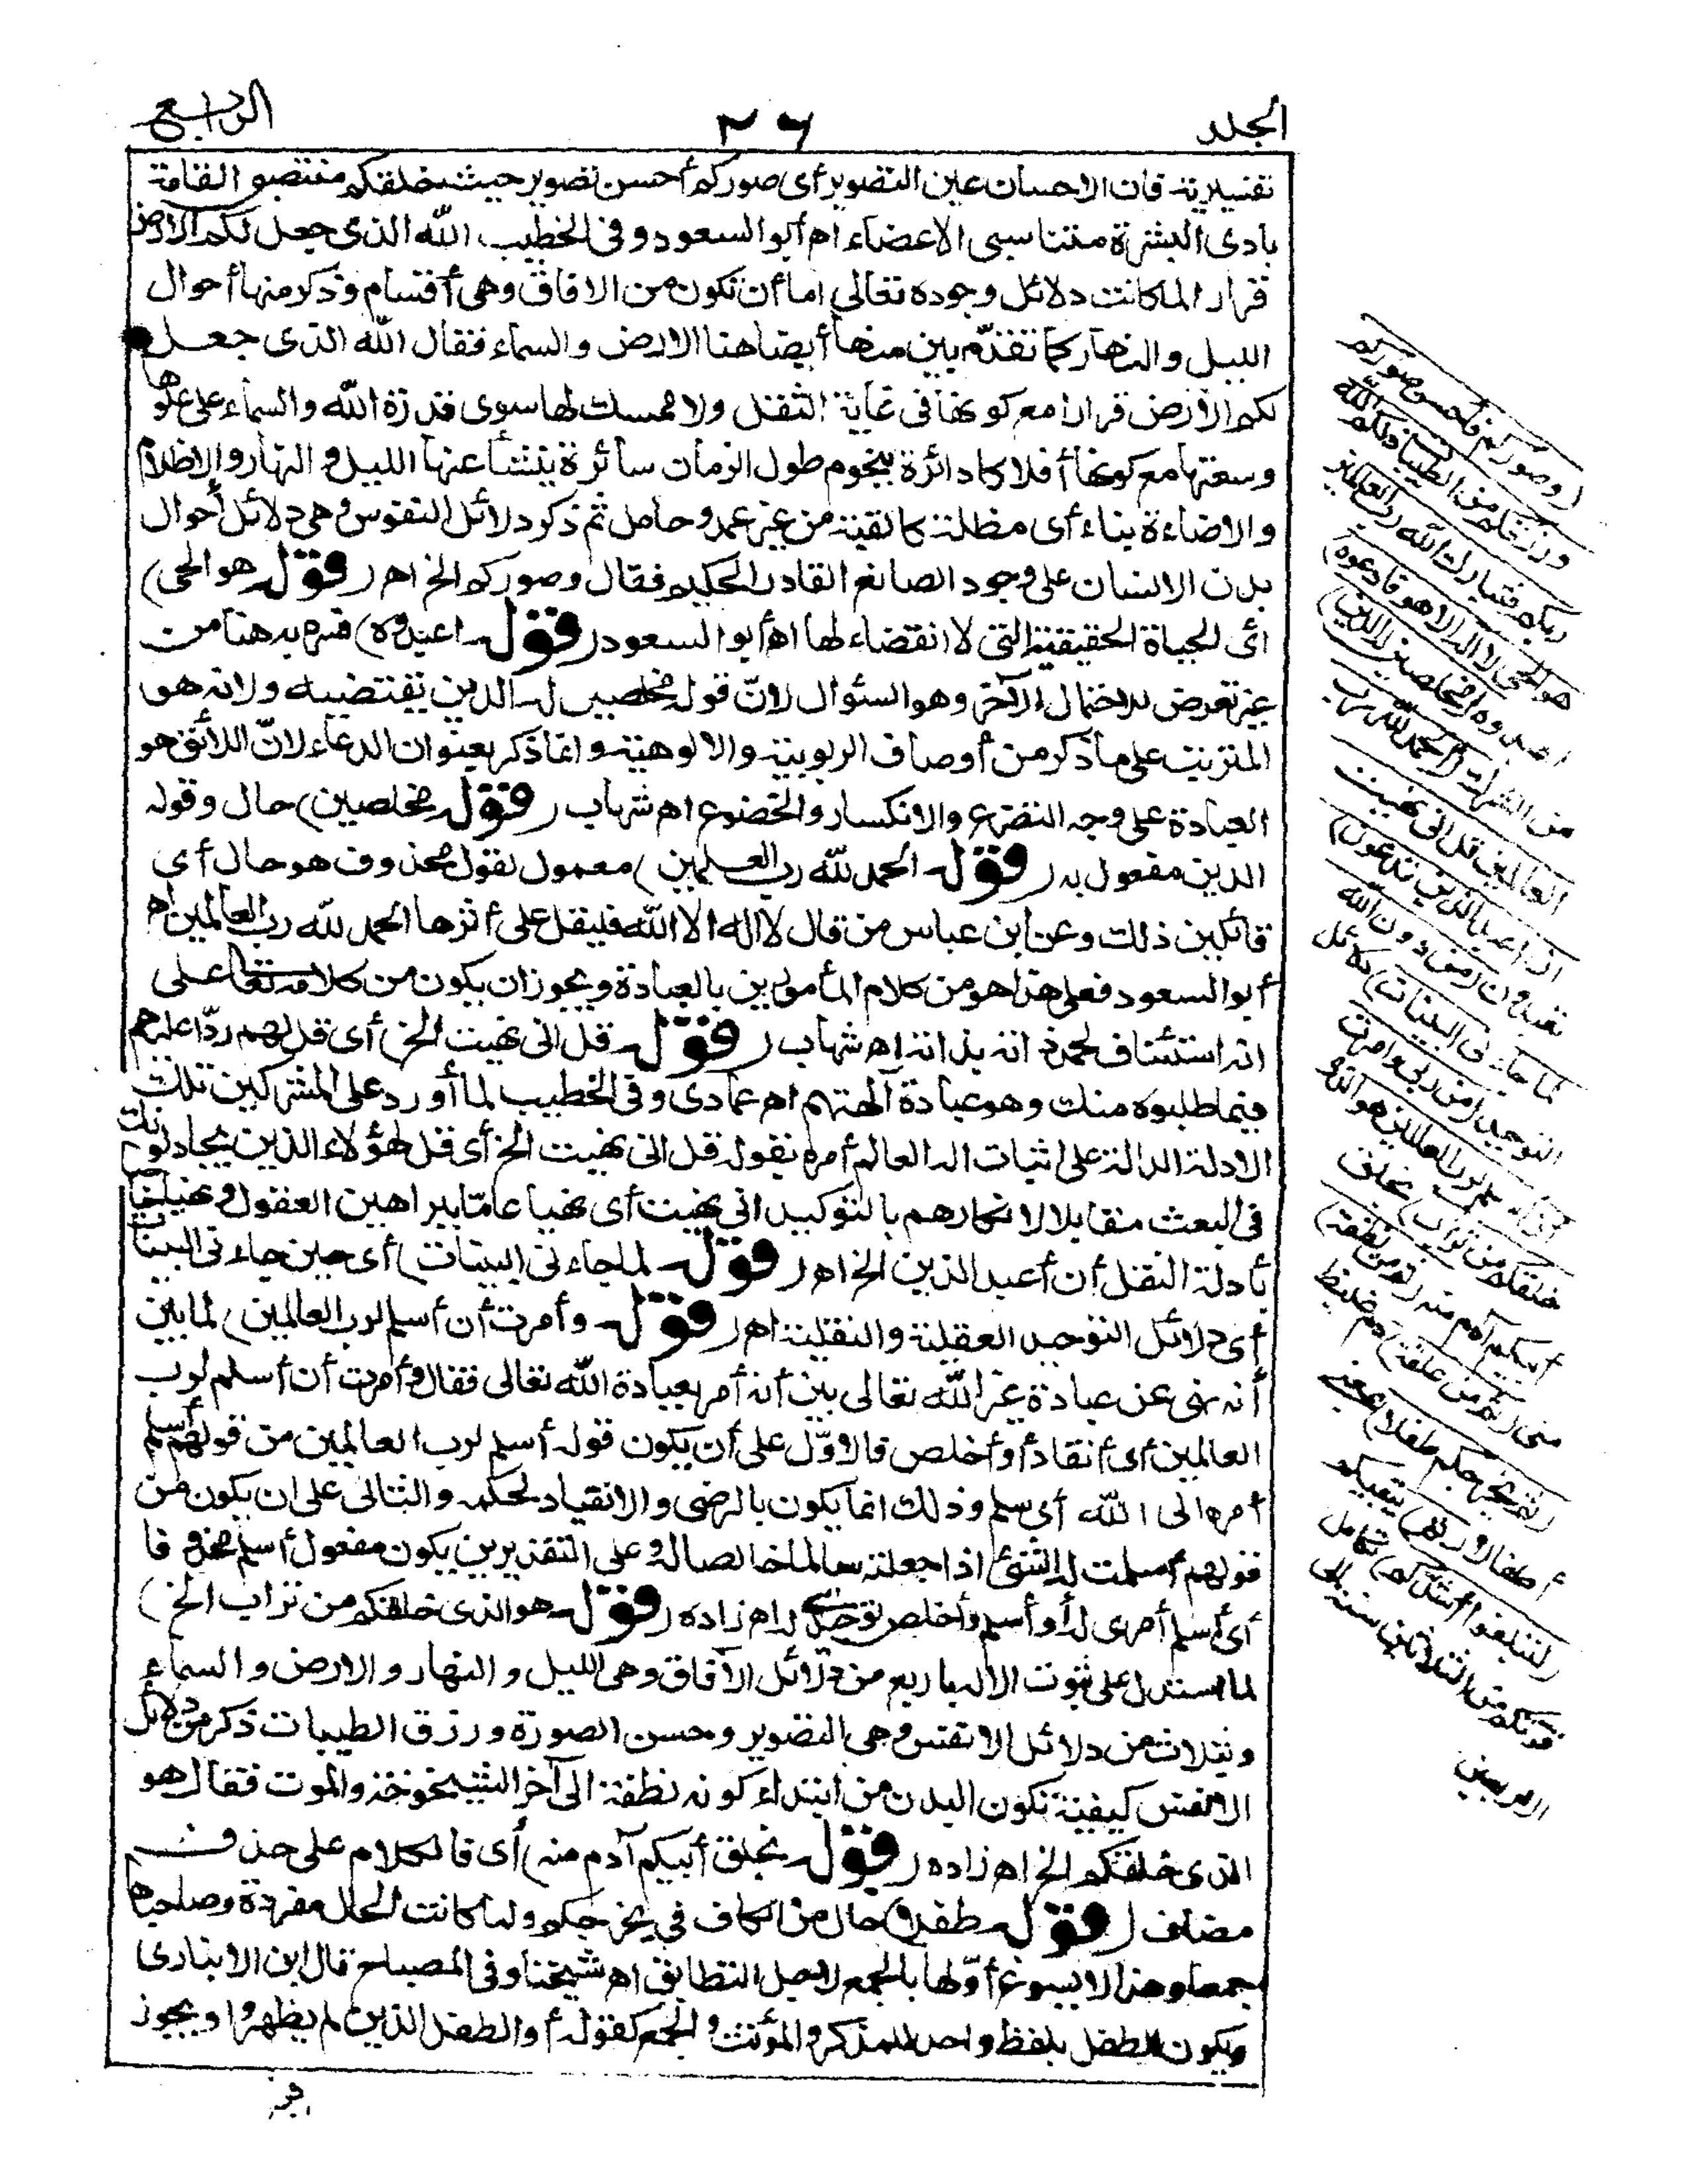 الجلد
٢٦
الرابع
تفسيرية فان الاحسان عين التصوير أى صوركم أحسن تصوير حيث خلقكم منتصبو القامة
بادى البشرة متناسبى الاعضاء اه أبو السعود وفى الخطيب الله الذى جعل لكم الارض
قرارا لما كانت دلائل وجوده تعالى اما أن تكون من الافاق وهى أقسام وذكر منها أحوال
الليل والنهار كما تقدّم بين منها أيضا هنا الارض والسماء فقال الله الذى جعل
لكم الارض قرارا مع كونها فى غاية الثقل ولا ممسك لها سوى قدرة الله والسماء على علوها
وسعتها مع كونها أفلاكا دائرة بنجوم طول الزمان سائرة ينشأ عنها الليل والنهار والاظلام
والاضاءة بناء أى مظلة كالقبة من غير عمد وحامل ثم ذكر دلائل النفوس وهى دلائل أحوال
بدن الانسان على وجود الصانع القادر الحكيم فقال وصوركم الخ اه (قوله هو الحى)
أى الحياة الحقيقية التى لا انقضاء لها اه أبو السعود (قوله اعبدوه) فسره به هنا من
غير تعرض للاحتمال الآخر وهو السئوال لانّ قوله مخلصين له الدين يقتضيه ولانه هو
المترتب على ما ذكر من أوصاف الربوبية والالوهية وانما ذكر بعنوان الدعاء لانّ اللائق هو
العبادة على وجه التضرع والانكسار والخضوع اه شهاب (قوله مخلصين) حال وقوله
الدين مفعول به (قوله الحمد لله رب العلمين) معمول لقول محذوف هو حال أى
قائلين ذلك وعن ابن عباس من قال لا اله الا الله فليقل على أثرها الحمد لله رب العالمين اه
أبو السعود فعلى هذا هو من كلام المأمورين بالعبادة ويجوز ان يكون من كلامه تعالى على
انه استئناف لحمد ذاته بذاته اه شهاب (قوله قل انى نهيت الخ) أى قل لهم ردّا عليهم
فيما طلبوه منك وهو عبادة آلهتهم اه عمادى وفى الخطيب لما أورد على المشركين تلك
الادلة الدالة على اثبات اله العالم أمره بقوله قل انى نهيت الخ أى قل لهؤلاء الذين يجادلونك
فى البعث مقابلا لانكارهم بالتوكيد انى نهيت أى نهيا عامّا ببراهين العقول ونهيا خاصا
بأدلة النقل أن أعبد الذين الخ اه (قوله لما جاءنى البينات) أى حين جاءنى البينات
أى دلائل التوحيد العقلية والنقلية اه (قوله وأمرت أن أسلم لرب العالمين) لما بين
أنه نهى عن عبادة غير الله تعالى بين أنه أمر بعبادة الله تعالى فقال وأمرت أن أسلم لرب
العالمين أى أنقاد أو أخلص فالاوّل على أن يكون قوله أسلم لرب العالمين من قولهم أسلم
أمره الى الله أى سلم وذلك انما يكون بالرضى والانقياد لحكمه والثانى على ان يكون من
قولهم أسلمت له الشئ اذا جعلته سالما خالصا له وعلى التقديرين يكون مفعول أسلم محذوفا
أى أسلم أمرى له أو أسلم وأخلص توحيدى له اه زاده (قوله هو الذى خلقكم من تراب الخ)
لما استدل على ثبوت الاله باربع من دلائل الآفاق وهى الليل والنهار والارض والسماء
وبثلاث من دلائل الانفس وهى التصوير وحسن الصورة ورزق الطيبات ذكر من دلائل
الانفس كيفية تكون البدن من ابتداء كونه نطفة الى آخر الشيخوخة والموت فقال هو
الذى خلقكم الخ اه زاده (قوله بخلق أبيكم آدم منه) أى فالكلام على حذف
مضاف (قوله طفلا) حال من الكاف فى يخرجكم ولما كانت الحال مفردة وصاحبها
جمعا وهذا لا يسوغ أوّلها بالجمع ليحصل التطابق اه شيخنا وفى المصباح قال ابن الانبارى
ويكون الطفل بلفظ واحد للمذكر والمؤنث والجمع كقوله أو الطفل الذين لم يظهروا ويجوز
(وصوركم فأحسن صوركم
ورزقكم من الطيبات ذلكم الله
ربكم فتبارك الله رب العالمين
هو الحى لا اله الا هو فادعوه)
اعبدوه (مخلصين له الدين)
من الشرك (الحمد لله رب
العالمين قل انى نهيت
ان أعبد الذين تدعون)
تعبدون (من دون الله
لما جاءنى البينات) دلائل
التوحيد (من ربى وأمرت
أن أسلم لرب العالمين هو الذى
خلقكم من تراب) بخلق
أبيكم آدم منه (ثم من نطفة)
منى (ثم من علقة) دم غليظ
(ثم يخرجكم طفلا) بمعنى
أطفالا (ثم) يبقيكم
(لتبلغوا أشدكم) تكامل
قوتكم من الثلاثين سنة الى
الاربعين